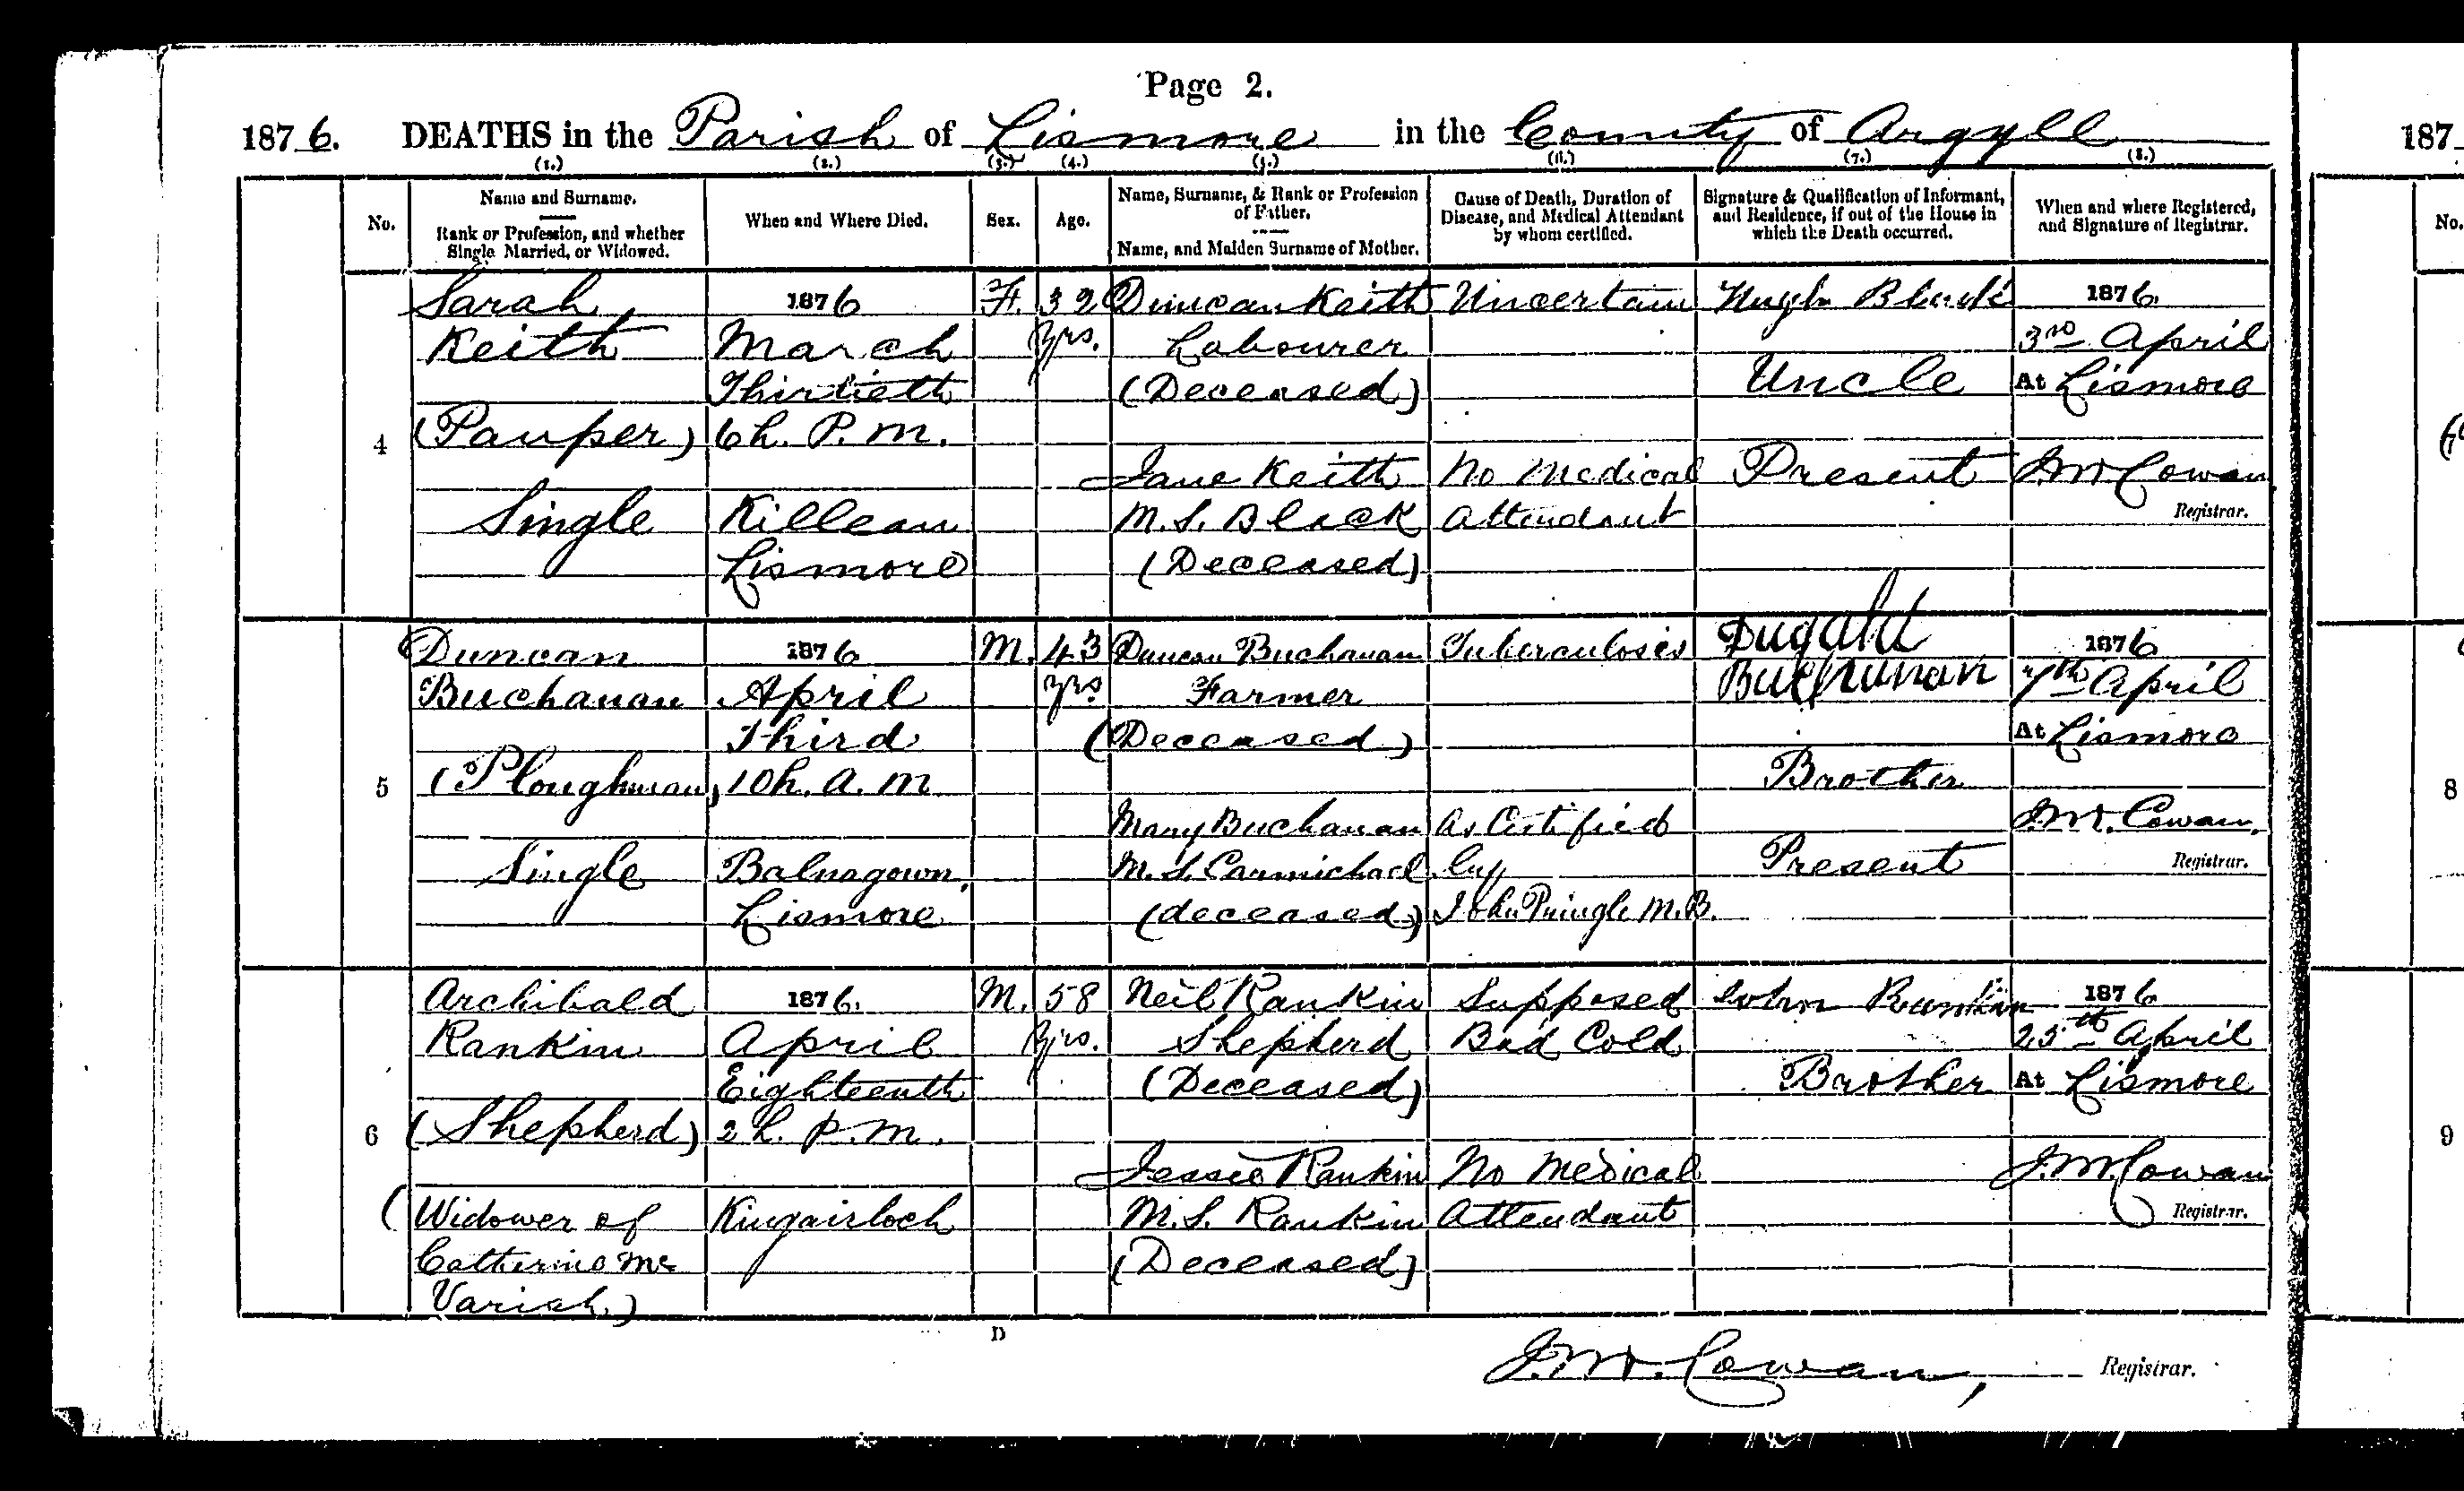 Page 2.
1876. DEATHS in the Parish of Lismore in the County of Argyll
187
(1.) (2.) (3.) (4.) (5.) (6.) (7.) (8.)
No.
Name and Surname.
Rank or Profession, and whether
Single, Married, or Widowed.
When and Where Died.
Sex.
Age.
Name, Surname, & Rank or Profession
of Father.
Name, and Maiden Surname of Mother.
Cause of Death, Duration of
Disease, and Medical Attendant
by whom certified.
Signature & Qualification of Informant,
and Residence, if out of the House in
which the Death occurred.
When and where Registered,
and Signature of Registrar.
No.
4
Sarah
Keith
(Pauper)
Single
1876
March
Thirtieth
6 h. P.M.
Killean
Lismore
F.
32
yrs.
Duncan Keith
Labourer
(Deceased)
Jane Keith
M.S. Black
(Deceased)
Uncertain
No Medical
Attendant
Hugh Black
Uncle
Present
1876
3rd April
At Lismore
J.W. Cowan
Registrar.
5
Duncan
Buchanan
(Ploughman)
Single
1876
April
Third
10 h. A.M
Balnagown,
Lismore
M.
43
yrs.
Duncan Buchanan
Farmer
(Deceased)
Mary Buchanan
M.S. Carmichael
(deceased)
Tuberculosis
As Certified
by
John Pringle M.B.
Dugald
Buchanan
Brother
Present
1876
7th April
At Lismore
J.W. Cowan.
Registrar.
8
6
Archibald
Rankin
(Shepherd)
(Widower of
Catherine Mc
Varish)
1876.
April
Eighteenth
2 h. P.M.
Kingairloch
M.
58
yrs.
Neil Rankin
Shepherd
(Deceased)
Jessie Rankin
M.S. Rankin
(Deceased)
Supposed
Bad Cold
No Medical
Attendant
John Rankin
Brother
1876
25th April
At Lismore
J.W. Cowan
Registrar.
9
D
J.W. Cowan, Registrar.